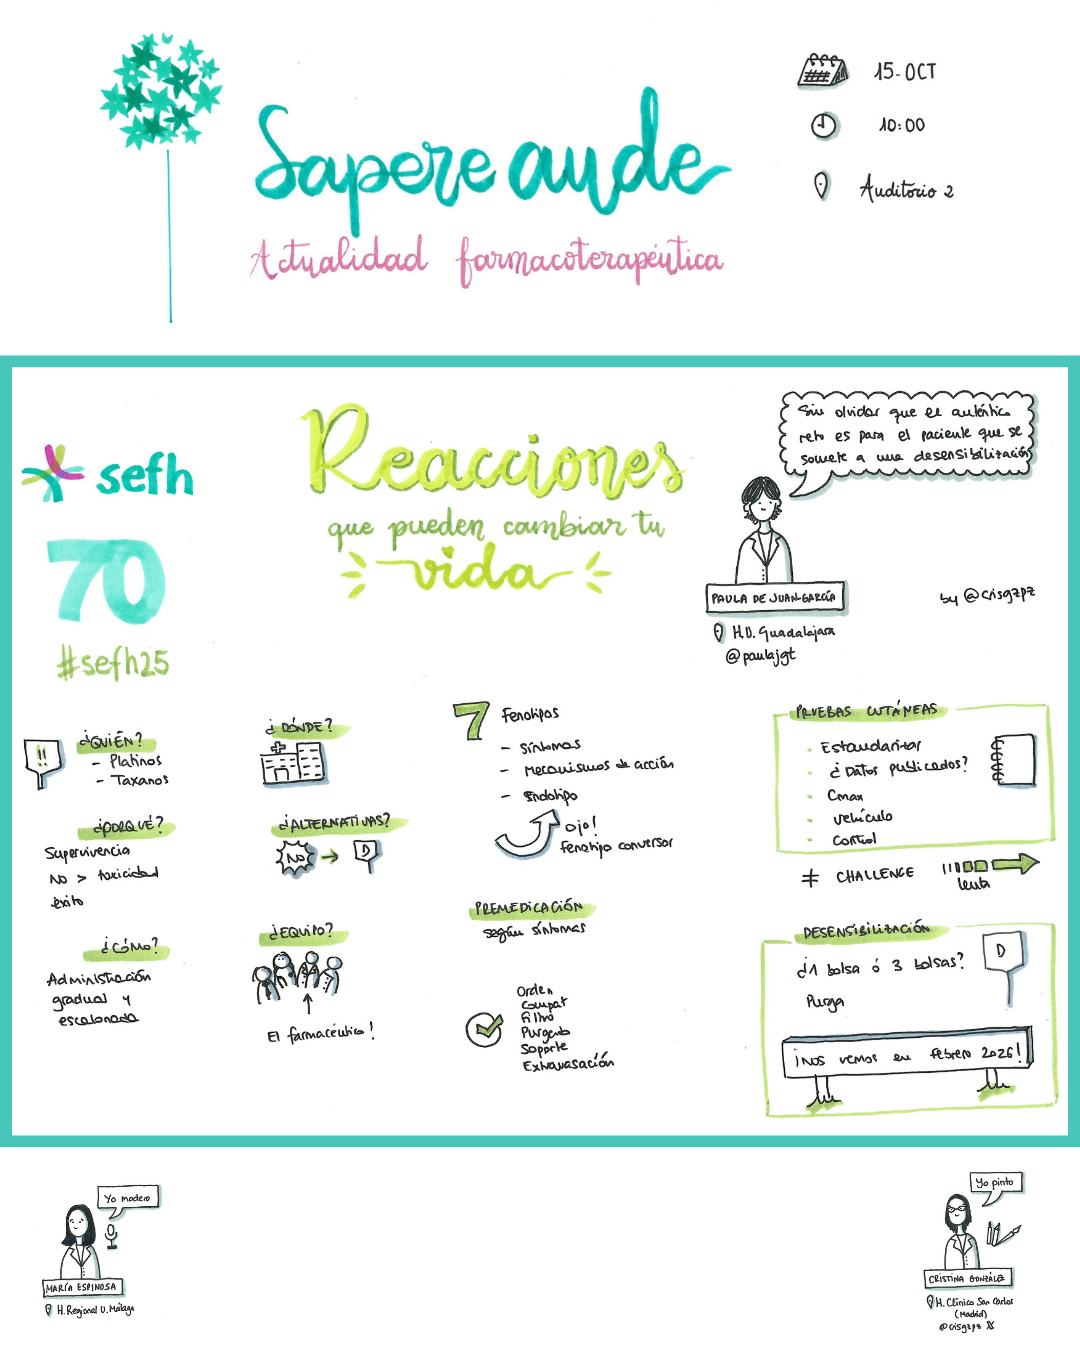 Sapere aude
Actualidad farmacoterapéutica
15-OCT
10:00
Auditorio 2
sefh
70
#sefh25
Reacciones
que pueden cambiar tu
vida
Sin olvidar que el auténtico
reto es para el paciente que se
somete a una desensibilización
PAULA DE JUAN-GARCÍA
H.U. Guadalajara
@paulajgt
by @crisgzpz
¿QUIÉN?
- Platinos
- Taxanos
¿PORQUÉ?
Supervivencia
NO > toxicidad
éxito
¿CÓMO?
Administración
gradual y
escalonada
¿DÓNDE?
¿ALTERNATIVAS?
NO → D
¿EQUIPO?
El farmacéutico!
7 Fenotipos
- Síntomas
- Mecanismos de acción
- Endotipo
Ojo!
Fenotipo conversor
PREMEDICACIÓN
según síntomas
Orden
Compat
Filtro
Purgado
Soporte
Extravasación
PRUEBAS CUTÁNEAS
Estandarizar
¿Datos publicados?
Cmax
Vehículo
Control
# CHALLENGE
lenta
DESENSIBILIZACIÓN
¿1 bolsa ó 3 bolsas?
D
Purga
¡Nos vemos en febrero 2026!
Yo modero
MARÍA ESPINOSA
H. Regional U. Málaga
Yo pinto
CRISTINA GONZÁLEZ
H. Clínico San Carlos
(Madrid)
@crisgzpz X